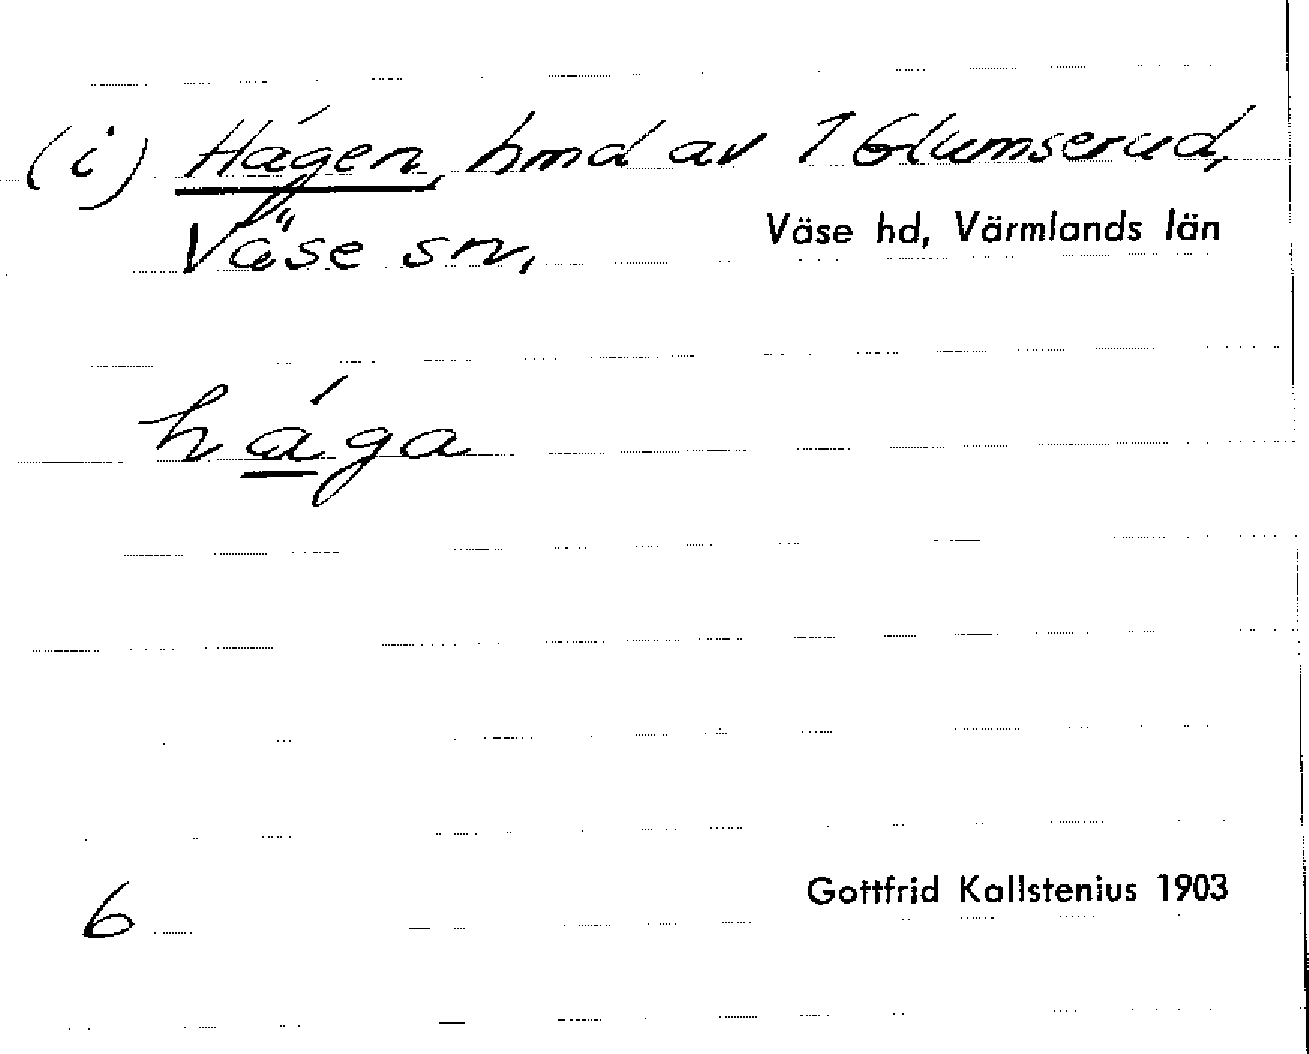 (i) Hágen, hmd av 1 Glumserud,
Väse sn,
Väse hd, Värmlands län
hága
6
Gottfrid Kallstenius 1903